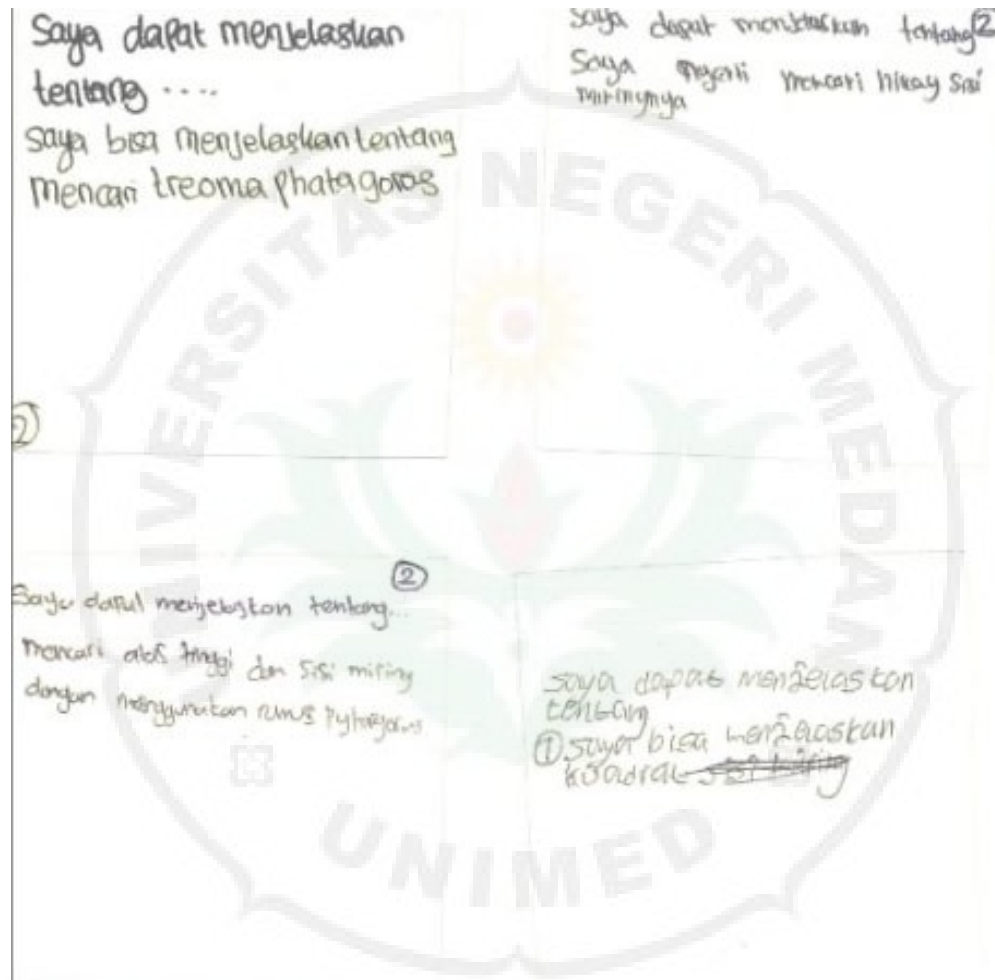 Saya dapat menjelaskan
tentang ....
saya bisa menjelaskan tentang
mencari treoma phatagoras
2
Saya dapat menjelaskan tentang 2
Saya ngerti mencari nilay sisi
miringnya
2
Saya dapat menjelaskan tentang...
mencari alas tinggi dan sisi miring
dengan menggunakan rumus Pythagoras
saya dapat menjelaskan
tentang
1 saya bisa menjelaskan
kuadrat
UNIVERSITAS NEGERI MEDAN
UNIMED